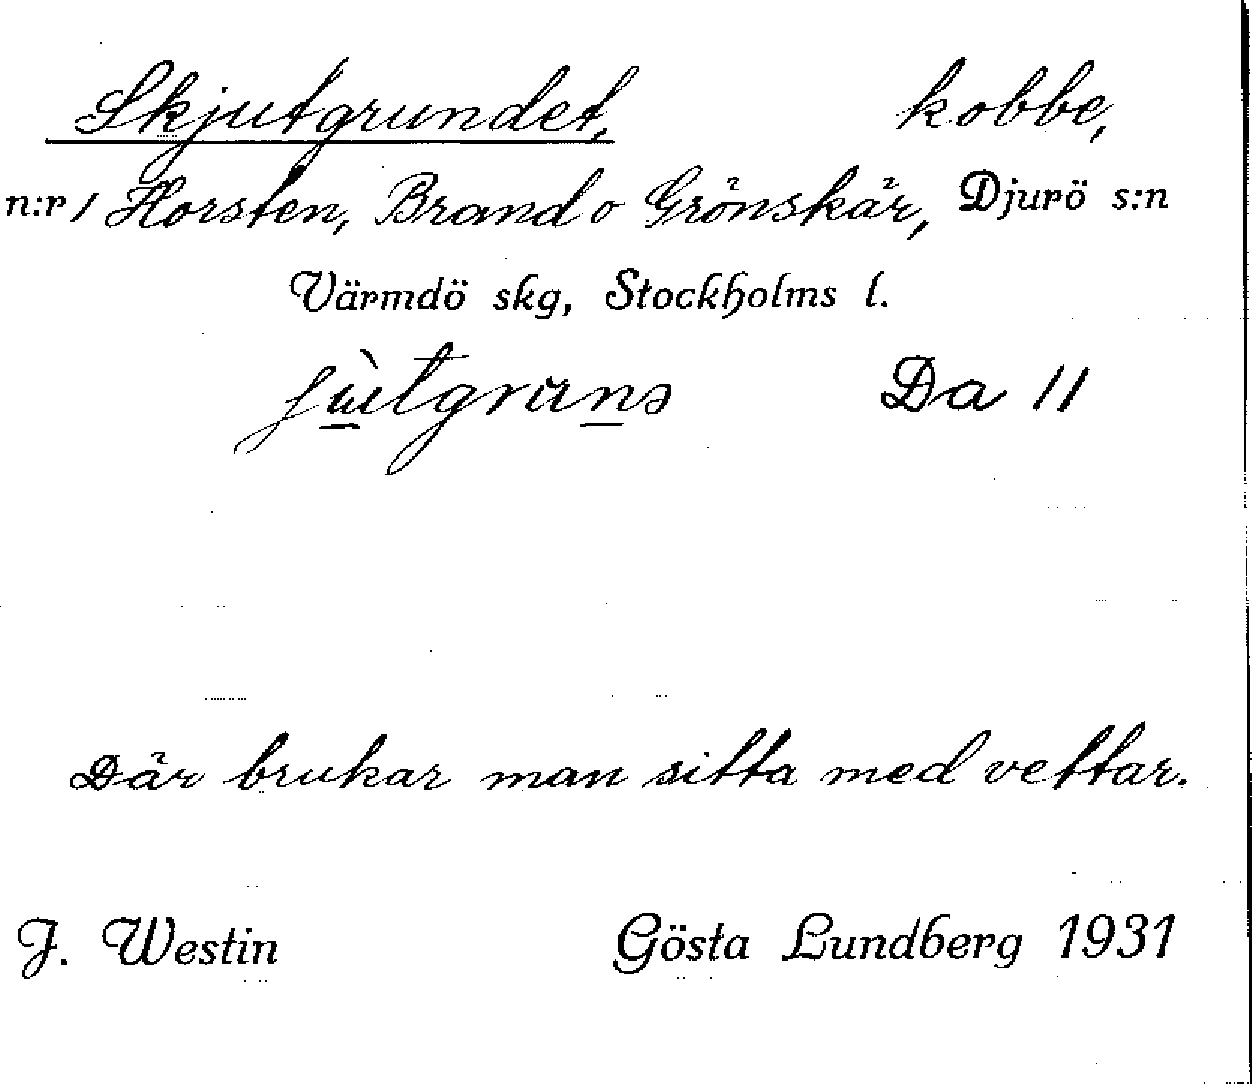 Skjutgrundet, kobbe,
n:r 1 Horsten, Brand o Grönskär, Djurö s:n
Värmdö skg, Stockholms l.
Da 11
Där brukar man sitta med vettar.
J. Westin Gösta Lundberg 1931